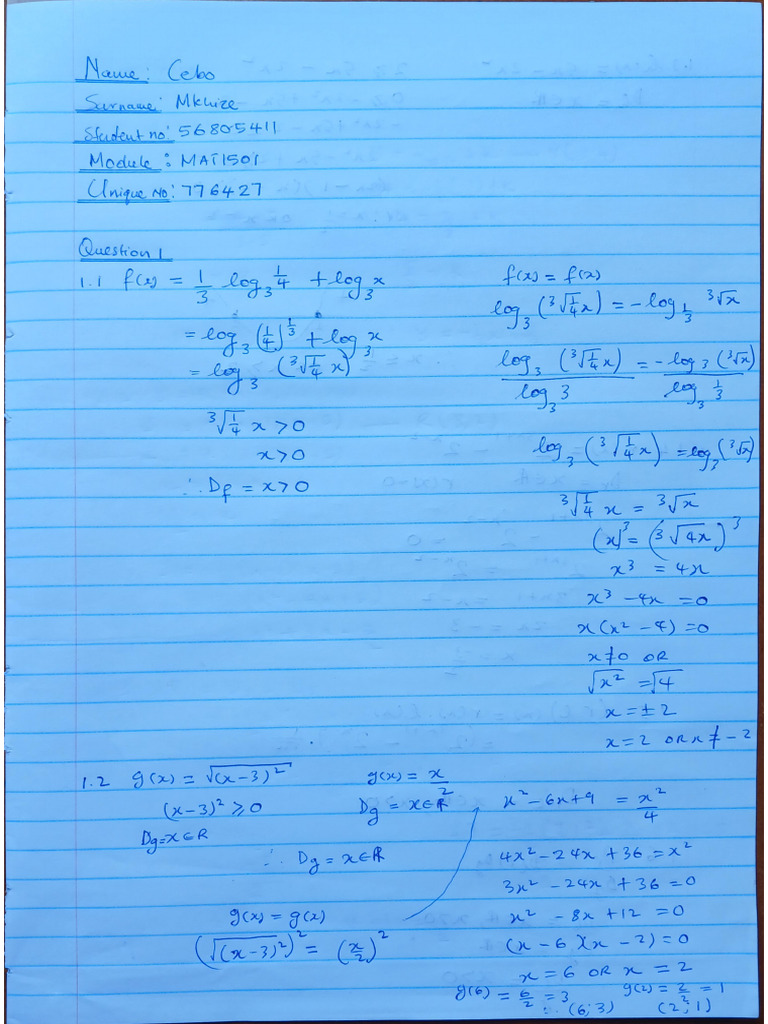 Name: Cebo
Surname: Mkhize
Student no: 56805411
Module: MAT1501
Unique No: 776427
Question 1
1.1 f(x) = 1/3 log₃ 1/4 + log₃ x
= log₃ (1/4)^(1/3) + log₃ x
= log₃ (³√(1/4) x)
³√(1/4) x > 0
x > 0
∴ D_f = x > 0
f(x) = f(x)
log₃ (³√(1/4) x) = -log_(1/3) ³√x
log₃ (³√(1/4) x) / log₃ 3 = -log₃ (³√x) / log₃ 1/3
log₃ (³√(1/4) x) = log₃ (³√x)
³√(1/4) x = ³√x
(x)³ = (³√4x)³
x³ = 4x
x³ - 4x = 0
x(x² - 4) = 0
x ≠ 0 OR
√x² = √4
x = ± 2
x = 2 OR x ≠ -2
1.2 g(x) = √(x-3)²
(x-3)² ≥ 0
Dg = x ∈ R
g(x) = x/2
Dg = x ∈ R
∴ Dg = x ∈ R
g(x) = g(x)
(√(x-3)²)² = (x/2)²
x² - 6x + 9 = x²/4
4x² - 24x + 36 = x²
3x² - 24x + 36 = 0
x² - 8x + 12 = 0
(x - 6)(x - 2) = 0
x = 6 OR x = 2
g(6) = 6/2 = 3 g(2) = 2/2 = 1
∴ (6; 3) (2; 1)